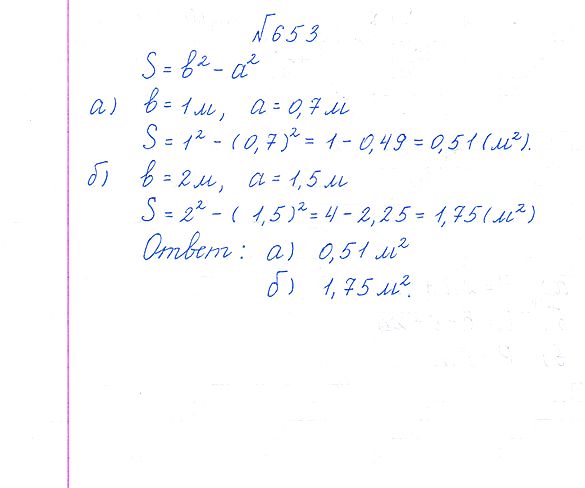 №653
S = b² - a²
а) b = 1м, a = 0,7м
S = 1² - (0,7)² = 1 - 0,49 = 0,51 (м²).
б) b = 2м, a = 1,5м
S = 2² - (1,5)² = 4 - 2,25 = 1,75 (м²)
Ответ: а) 0,51 м²
б) 1,75 м².